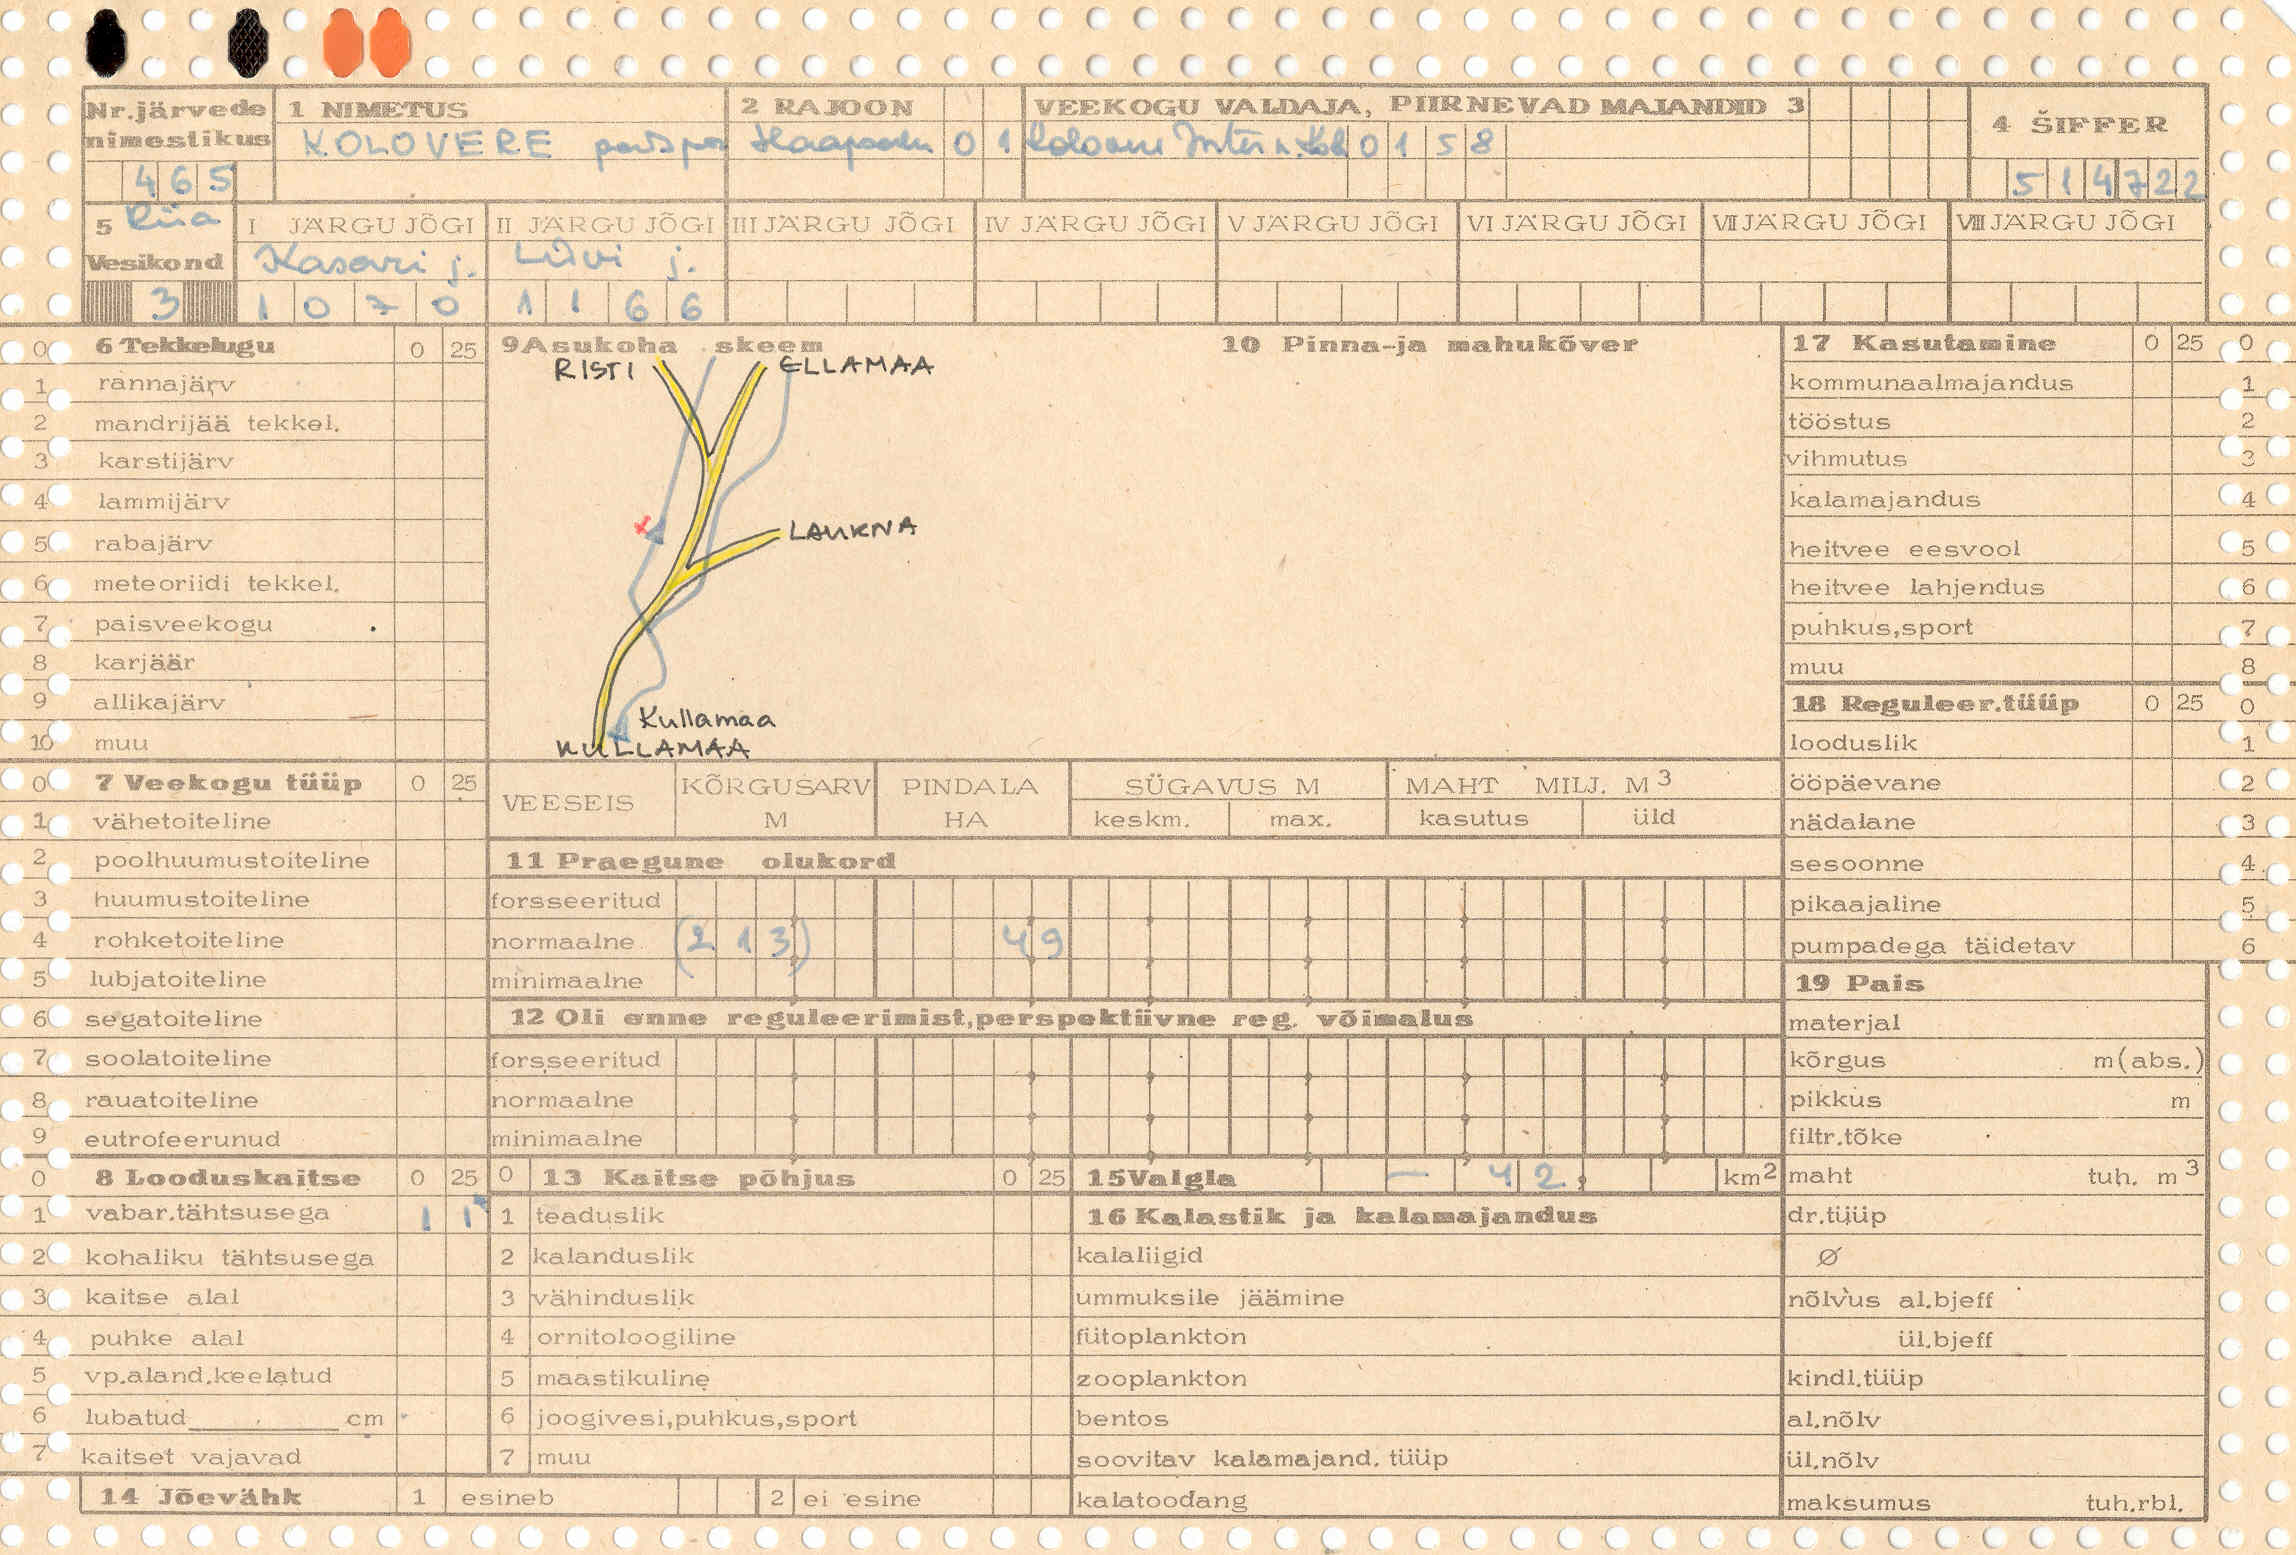 Nr.järvede nimestikus 1 NIMETUS 2 RAJOON VEEKOGU VALDAJA, PIIRNEVAD MAJANDID 3 4 ŠIFFER
KOLOVERE Haapsalu 0 1 0 1 5 8
4 6 5 5 1 4 7 2 2
5 Riia I JÄRGU JÕGI II JÄRGU JÕGI III JÄRGU JÕGI IV JÄRGU JÕGI V JÄRGU JÕGI VI JÄRGU JÕGI VII JÄRGU JÕGI VIII JÄRGU JÕGI
Vesikond Kasari j. Liivi j.
3 1 0 7 0 1 1 6 6
0 6 Tekkelugu 0 25
1 rannajärv
2 mandrijää tekkel.
3 karstijärv
4 lammijärv
5 rabajärv
6 meteoriidi tekkel.
7 paisveekogu
8 karjäär
9 allikajärv
10 muu
9 Asukoha skeem 10 Pinna-ja mahukõver
RISTI ELLAMAA
LAUKNA
Kullamaa
KULLAMAA
17 Kasutamine 0 25 0
kommunaalmajandus 1
tööstus 2
vihmutus 3
kalamajandus 4
heitvee eesvool 5
heitvee lahjendus 6
puhkus,sport 7
muu 8
18 Reguleer.tüüp 0 25 0
looduslik 1
ööpäevane 2
nädalane 3
sesoonne 4
pikaajaline 5
pumpadega täidetav 6
0 7 Veekogu tüüp 0 25
1 vähetoiteline
2 poolhuumustoiteline
3 huumustoiteline
4 rohketoiteline
5 lubjatoiteline
6 segatoiteline
7 soolatoiteline
8 rauatoiteline
9 eutrofeerunud
VEESEIS KÕRGUSARV M PINDALA HA SÜGAVUS M MAHT MILJ. M3
keskm. max. kasutus üld
11 Praegune olukord
forsseeritud
normaalne (2 1 3) 4 9
minimaalne
12 Oli enne reguleerimist,perspektiivne reg. võimalus
forsseeritud
normaalne
minimaalne
19 Pais
materjal
kõrgus m(abs.)
pikkus m
filtr.tõke
maht tuh. m3
dr.tüüp
Ø
nõlvus al.bjeff
ül.bjeff
kindl.tüüp
al.nõlv
ül.nõlv
maksumus tuh.rbl.
0 8 Looduskaitse 0 25
1 vabar.tähtsusega 1 1
2 kohaliku tähtsusega
3 kaitse alal
4 puhke alal
5 vp.aland.keelatud
6 lubatud cm
7 kaitset vajavad
0 13 Kaitse põhjus 0 25
1 teaduslik
2 kalanduslik
3 vähinduslik
4 ornitoloogiline
5 maastikuline
6 joogivesi,puhkus,sport
7 muu
15 Valgla – 4 2 , km2
16 Kalastik ja kalamajandus
kalaliigid
ummuksile jäämine
fütoplankton
zooplankton
bentos
soovitav kalamajand. tüüp
kalatoodang
14 Jõevähk 1 esineb 2 ei esine